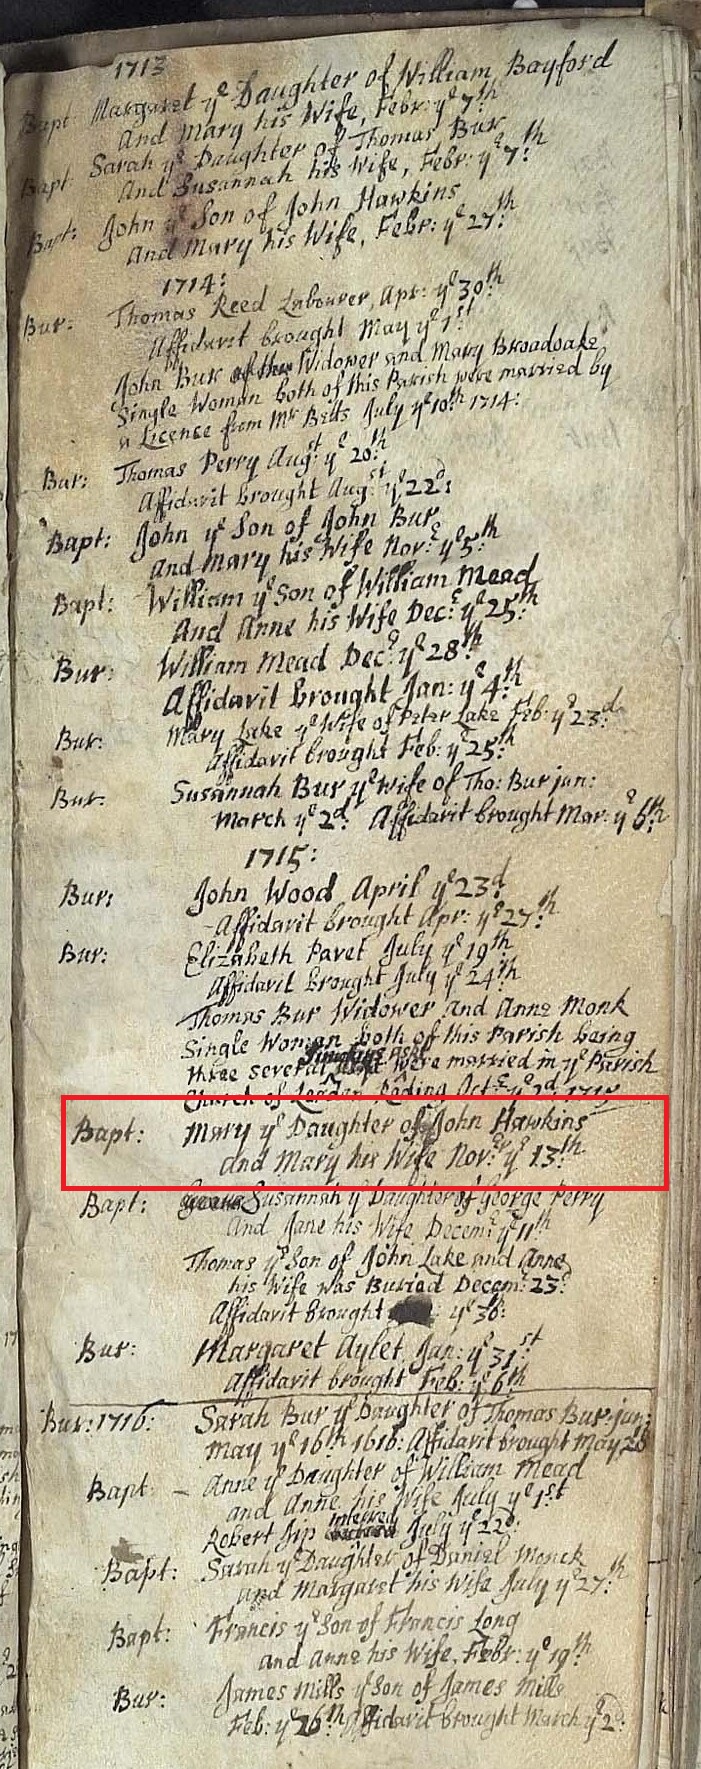 1713
Bapt: Margaret yᵉ Daughter of William Bayford
And Mary his Wife, Febr: yᵉ 7ᵗʰ
Bapt: Sarah yᵉ Daughter of Thomas Bur
And Susannah his Wife, Febr: yᵉ 7ᵗʰ
Bapt: John yᵉ Son of John Hawkins
And Mary his Wife, Febr: yᵉ 27ᵗʰ
1714:
Bur: Thomas Reed Labourer, Apr: yᵉ 30ᵗʰ
Affidavit brought May yᵉ 1ˢᵗ
John Bur Widower and Mary Broadoake
Single Woman both of this Parish were married by
a Licence from Mʳ Betts July yᵉ 10ᵗʰ 1714:
Bur: Thomas Perry Augˢᵗ yᵉ 20ᵗʰ
Affidavit brought Augˢᵗ yᵉ 22ᵈ:
Bapt: John yᵉ Son of John Bur
and Mary his Wife Novᵉ: yᵉ 5ᵗʰ
Bapt: William yᵉ Son of William Mead
And Anne his Wife Decᵉ: yᵉ 25ᵗʰ
Bur: William Mead Decᵉ: yᵉ 28ᵗʰ
Affidavit brought Jan: yᵉ 4ᵗʰ
Bur: Mary Lake yᵉ Wife of Peter Lake Feb: yᵉ 23ᵈ
Affidavit brought Feb: yᵉ 25ᵗʰ
Bur: Susannah Bur yᵉ Wife of Tho: Bur jun:
March yᵉ 2ᵈ: Affidavit brought Mar: yᵉ 6ᵗʰ
1715:
Bur: John Wood April yᵉ 23ᵈ
Affidavit brought Apr: yᵉ 27ᵗʰ
Bur: Elizabeth Pavet July yᵉ 19ᵗʰ
Affidavit brought July yᵉ 24ᵗʰ
Thomas Bur Widower and Anne Monk
Single Woman both of this Parish being
three several were married in yᵉ Parish
Church of Leaden Roding Octᵉ: yᵉ 2ᵈ 1715
Bapt: Mary yᵉ Daughter of John Hawkins
and Mary his Wife Novᵉʳ: yᵉ 13ᵗʰ
Bapt: Susannah yᵉ Daughter of George Perry
And Jane his Wife Decem: yᵉ 11ᵗʰ
Thomas yᵉ Son of John Lake and Anne
his Wife was Buried Decem: 23:
Affidavit brought yᵉ 30:
Bur: Margaret Aylet Jan: yᵉ 31ˢᵗ
Affidavit brought Feb: yᵉ 6ᵗʰ
Bur: 1716: Sarah Bur yᵉ Daughter of Thomas Bur jun:
May yᵉ 16ᵗʰ 1616: Affidavit brought May
Bapt - Anne yᵉ Daughter of William Mead
and Anne his Wife July yᵉ 1ˢᵗ
Robert Jip interred July yᵉ 22:
Bapt: Sarah yᵉ Daughter of Daniel Monck
and Margaret his Wife July yᵉ 27ᵗʰ
Bapt: Francis yᵉ Son of Francis Long
and Anne his Wife, Febr: yᵉ 19ᵗʰ
Bur: James Mills yᵉ Son of James Mills
Feb: yᵉ 26ᵗʰ Affidavit brought March yᵉ 2: